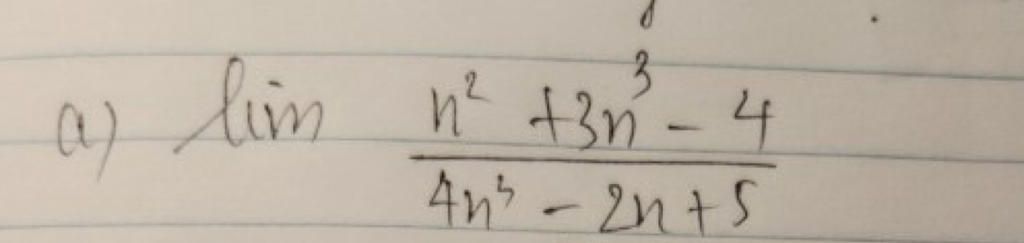 a) lim n² + 3n³ - 4
4n³ - 2n + 5